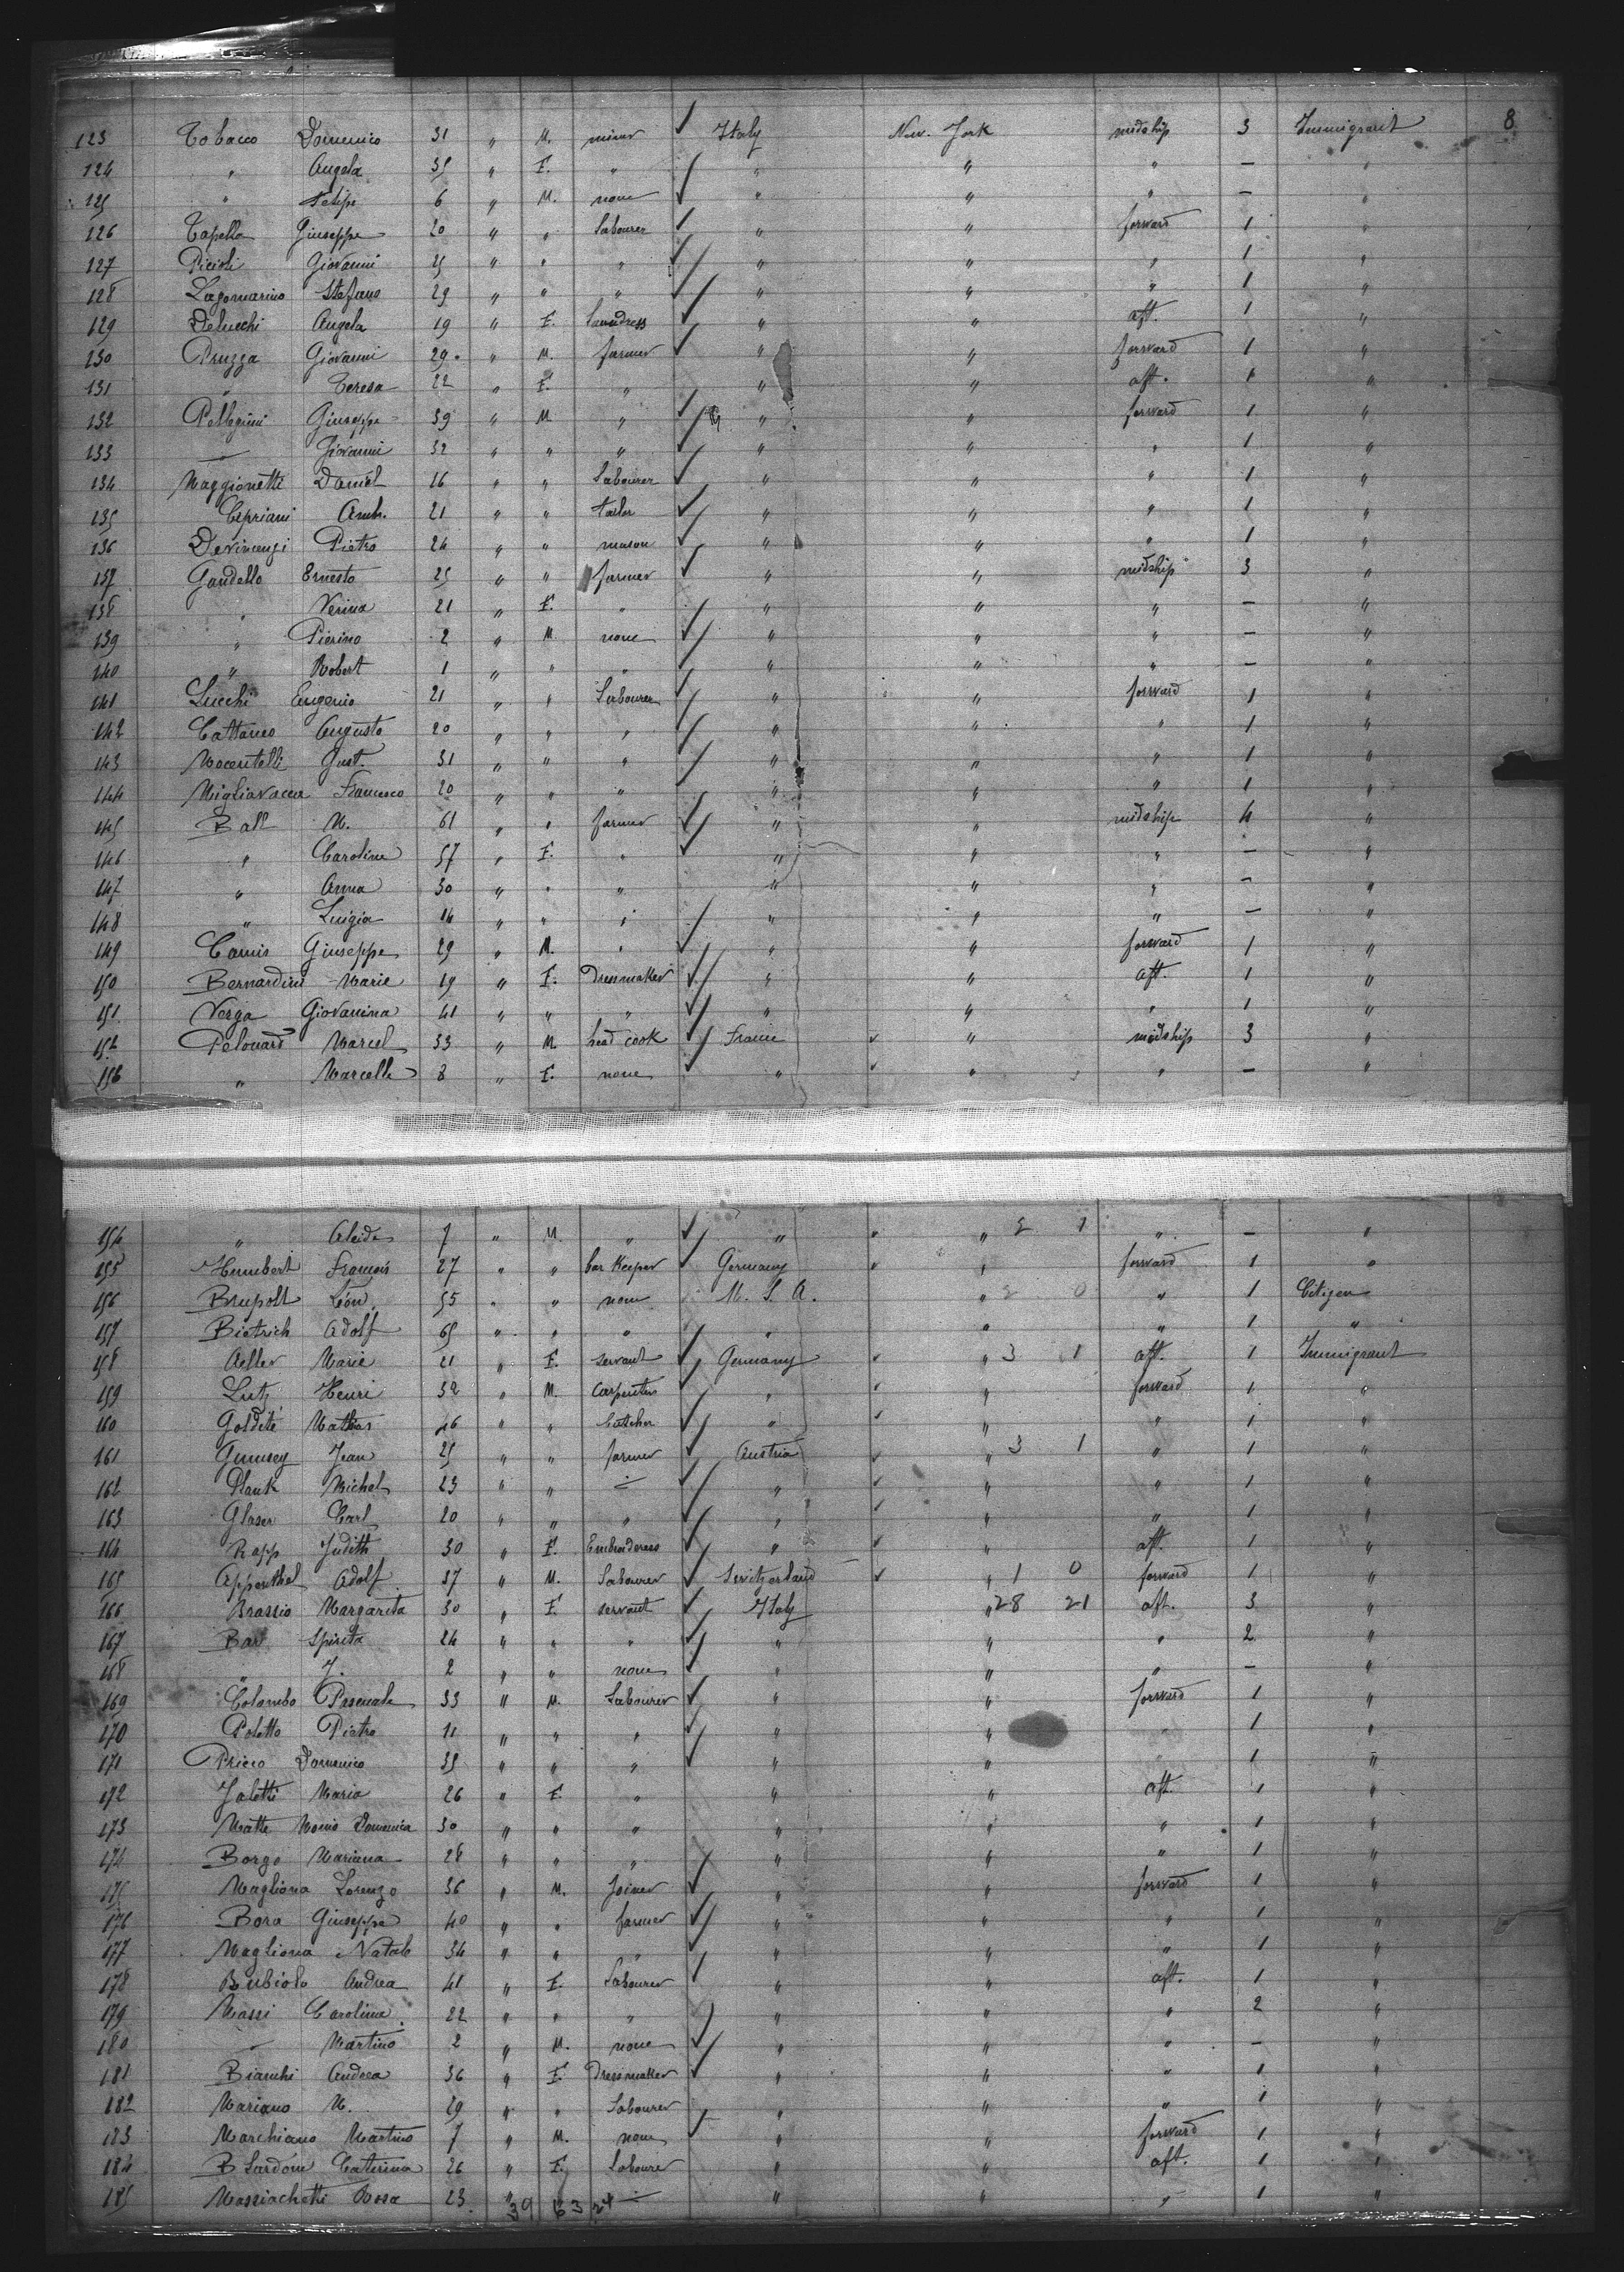 8
123 Tobacco Domenico 31 " M. miner Italy New. York midship 3 Immigrant
124 " Angela 35 " F. " " " " — "
125 " Felipe 6 " M. none " " " — "
126 Capella Giuseppe 20 " " Labourer " " forward 1 "
127 Picioli Giovanni 25 " " " " " " 1 "
128 Lagomarino Stefano 29 " " " " " " 1 "
129 Delucchi Angela 19 " F. Laundress " " aft. 1 "
130 Pruzza Giovanni 29 " M. farmer " " forward 1 "
131 " Teresa 22 " F. " " " aft. 1 "
132 Pellegrini Giuseppe 39 " M. " " " forward 1 "
133 — Giovanni 32 " " " " " " 1 "
134 Maggionetti Daniel 16 " " Labourer " " " 1 "
135 Cipriani Amb. 21 " " tailor " " " 1 "
136 Devincenzi Pietro 24 " " mason " " " 1 "
137 Gandello Ernesto 25 " " farmer " " midship 3 "
138 " Verina 21 " F. " " " " — "
139 " Pierino 2 " M. none " " " — "
140 " Robert 1 " " " " " " — "
141 Lucchi Eugenio 21 " " Labourer " " forward 1 "
142 Cattaneo Augusto 20 " " " " " " 1 "
143 Mocentelli Gust. 31 " " " " " " 1 "
144 Migliavacca Francesco 20 " " " " " " 1 "
145 Ball M. 61 " " farmer " " midship 4 "
146 " Caroline 57 " F. " " " " — "
147 " Anna 30 " " " " " " — "
148 " Luigia 14 " " " " " " — "
149 Camis Giuseppe 29 " M. " " " forward 1 "
150 Bernardini Marie 19 " F. Dressmaker " " aft. 1 "
151 Verga Giovanina 41 " " " " " " 1 "
152 Pelouard Marcel 33 " M. head cook France " midship 3 "
153 " Marcelle 8 " F. none " " " — "
154 " Aleide 7 " M. " " " 2 1 " — "
155 Humbert Francois 27 " " bar Keeper Germany " forward 1 "
156 Brupolt Léon 55 " " none U. S. A. " 2 0 " 1 Citizen
157 Bietrich Adolf 65 " " " " " " 1 "
158 Aeller Marie 21 " F. servant Germany " 3 1 aft. 1 Immigrant
159 Lutz Henri 32 " M. Carpenter " " forward 1 "
160 Goldité Mathias 46 " " butcher " " " 1 "
161 Gumsey Jean 25 " " farmer Austria " 3 1 " 1 "
162 Plank Michel 23 " " — " " " 1 "
163 Glaser Carl 20 " " " " " " 1 "
164 Rapp Judith 30 " F. Embroideress " " aft. 1 "
165 Appenthel Adolf 37 " M. Labourer Switzerland " 1 0 forward 1 "
166 Brassio Margarita 30 " F. servant Italy " 28 21 aft. 3 "
167 Bar Spirita 24 " " " " " " 2 "
168 " J. 2 " " none " " " — "
169 Colombo Pascuale 33 " M. Labourer " " forward 1 "
170 Poletto Pietro 11 " " " " " " 1 "
171 Pricco Domenico 35 " " " " " " 1 "
172 Jaletti Maria 26 " F. " " " aft. 1 "
173 Matte Domenica 30 " " " " " " 1 "
174 Borgo Mariana 28 " " " " " " 1 "
175 Magliona Lorenzo 36 " M. Joiner " " forward 1 "
176 Bora Giuseppe 40 " " farmer " " " 1 "
177 Magliona Natale 34 " " " " " " 1 "
178 Bubiolo Andrea 41 " F. Labourer " " aft. 1 "
179 Massi Carolina 22 " " " " " " 2 "
180 — Martino 2 " M. none " " " — "
181 Bianchi Andrea 36 " F. Dressmaker " " " 1 "
182 Mariano M. 29 " " Labourer " " " 1 "
183 Marchiano Martino 7 " M. none " " forward 1 "
184 B Sardoin Caterina 26 " F. Labourer " " aft. 1 "
185 Massiachetti Rosa 23 " " — " " " 1 "
39 63 24